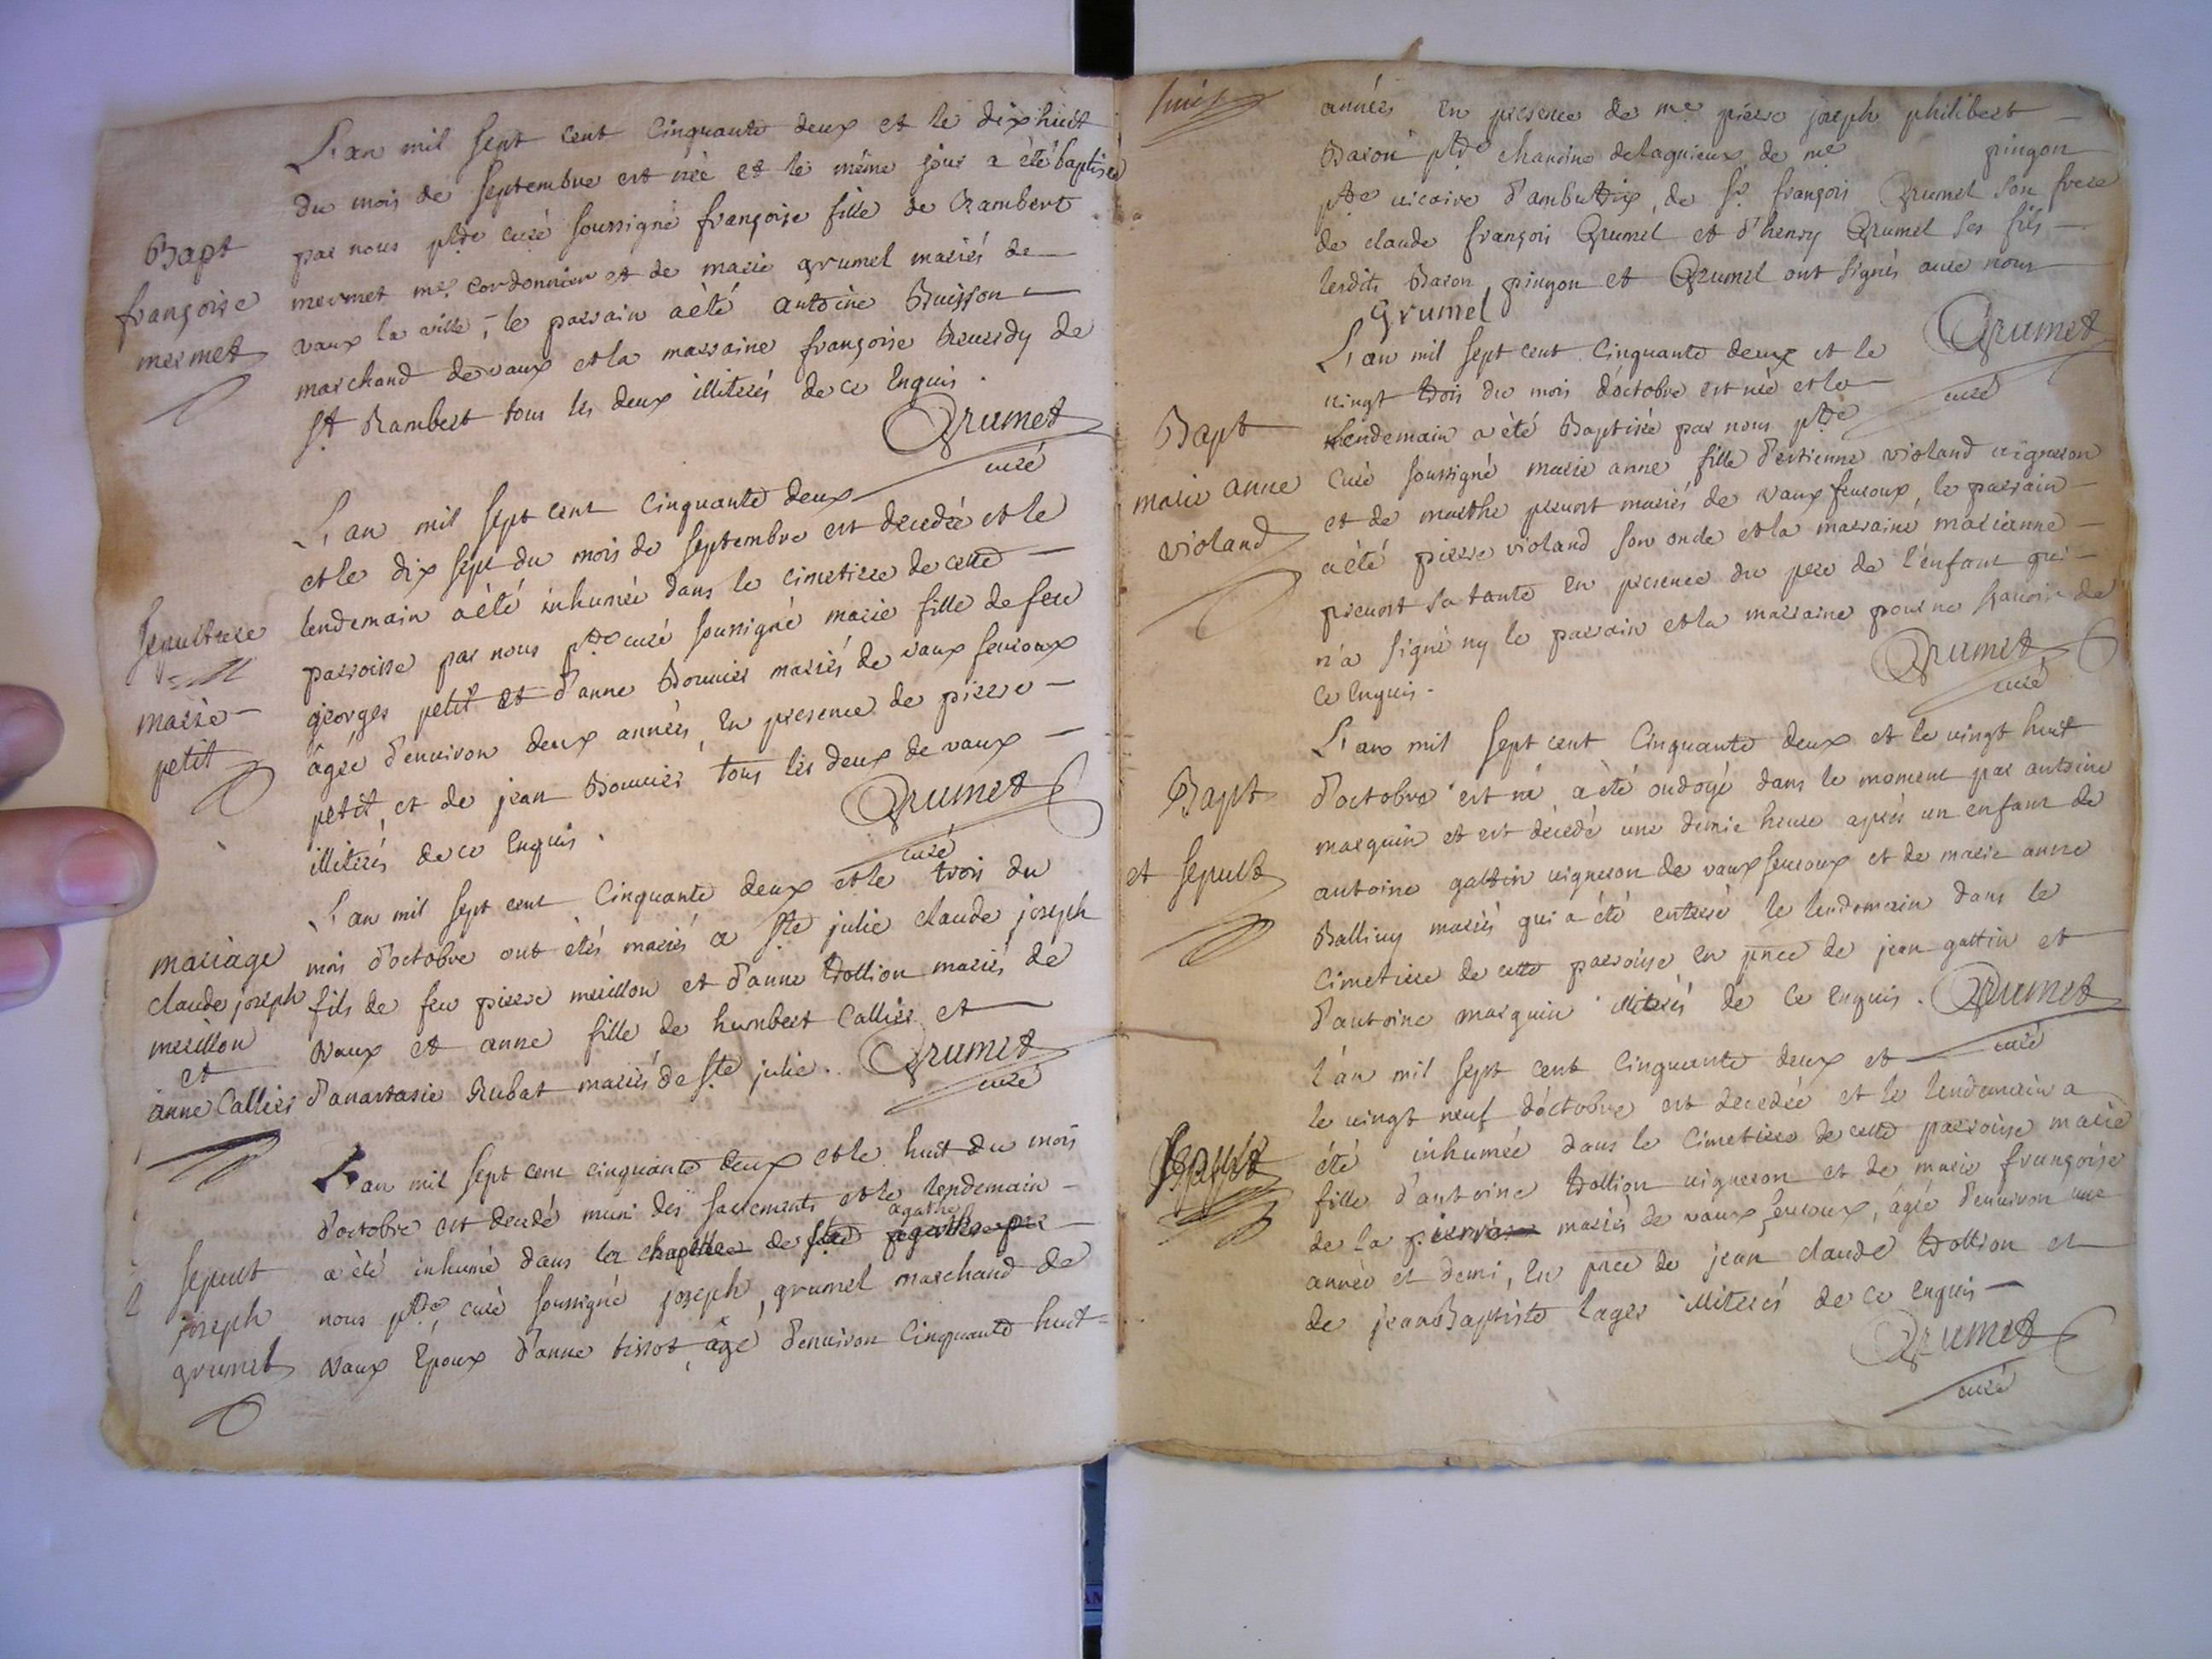 L'an mil sept cent Cinquante deux et le dixhuit
du mois de septembre est née et le même jour a été baptisée
Bapt
françoise
mermet
par nous ptre curé soussigné françoise fille de Rambert
mermet me. cordonnier et de marie grumel mariés de
vaux la ville, le parrain a été antoine Buisson
marchand de vaux et la marraine françoise Reverdy de
St Rambert tous les deux illiterés de ce Enquis.
Grumet
curé
L'an mil sept cent Cinquante deux
et le dix sept du mois de septembre est decedée et le
Sepulture
marie
petit
lendemain a été inhumée dans le cimetiere de cette
parroisse par nous ptre curé soussigné marie fille de feu
georges petit et d'anne Bouvier mariés de vaux fevroux
âgée d'environ deux années, En presence de pierre
petit, et de jean Bouvier tous les deux de vaux
illiterés de ce Enquis.
Grumet
curé
L'an mil sept cent Cinquante deux et le trois du
mariage
claude joseph
merillon
et
anne Callier
mois d'octobre ont etés mariés a Ste julie claude joseph
fils de feu pierre merillon et d'anne trollion mariés de
vaux et anne fille de humbert Callier et
d'anastasie Rubat mariés de Ste julie. Grumet
curé
L'an mil sept cent cinquante deux et le huit du mois
d'octobre est decedé muni des sacrements et le lendemain
agathe
a été inhumé dans la chapelle de ste agathe par
sepult
joseph
grumel
nous ptre, curé soussigné joseph grumel marchand de
vaux Epoux d'anne tissot, âgé d'environ Cinquante huit
suit
années En presence de me pierre joseph philibert
Baron ptre chanoine delagnieux de me pingon
ptre vicaire d'ambutrix, de Sr. françois Grumel son frere
de claude françois Grumel et d'henry Grumel ses fils
lesdits Baron, pingon et Grumel ont signés avec nous
Grumel
Grumet
curé
L'an mil sept cent Cinquante deux et le
vingt trois du mois d'octobre est née et le
Bapt
marie anne
violand
lendemain a été Baptisée par nous ptre
curé soussigné marie anne fille d'estienne violand vigneron
et de marthe prevost mariés de vaux fevroux, le parrain
a été pierre violand son oncle et la marraine marianne
prevost sa tante En presence du pere de l'enfant qui
n'a signé ny le parrain et la marraine pour ne sçavoir de
ce Enquis.
Grumet
curé
L'an mil sept cent Cinquante deux et le vingt huit
Bapt
et sepult
d'octobre est né a été ondoyé dans le moment par antoine
marquin et est decedé une demie heure aprés un enfant de
antoine gattin vigneron de vaux fevroux et de marie anne
Balliny mariés qui a été enterré le lendemain dans le
cimetiere de cette parroisse en pnce de jean gattin et
d'antoine marquin illiterés de ce Enquis. Grumet
curé
L'an mil sept cent Cinquante deux et
le vingt neuf d'octobre est decedée et le lendemain a
Sepult
été inhumée dans le Cimetiere de cette parroisse marie
fille d'antoine trollion vigneron et de marie françoise
de la pierre mariés de vaux fevroux, âgée d'environ une
année et demi, En pnce de jean claude trollion et
de jean Baptiste lager illiterés de ce Enquis
Grumet
curé